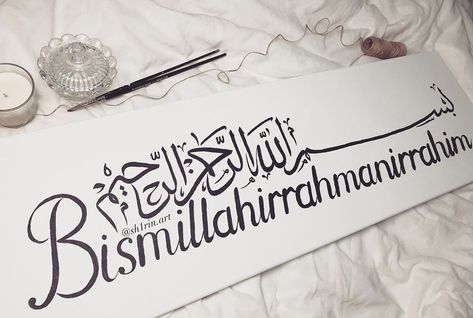 بسم الله الرحمن الرحيم
@sh1rin.art
Bismillahirrahmanirrahim